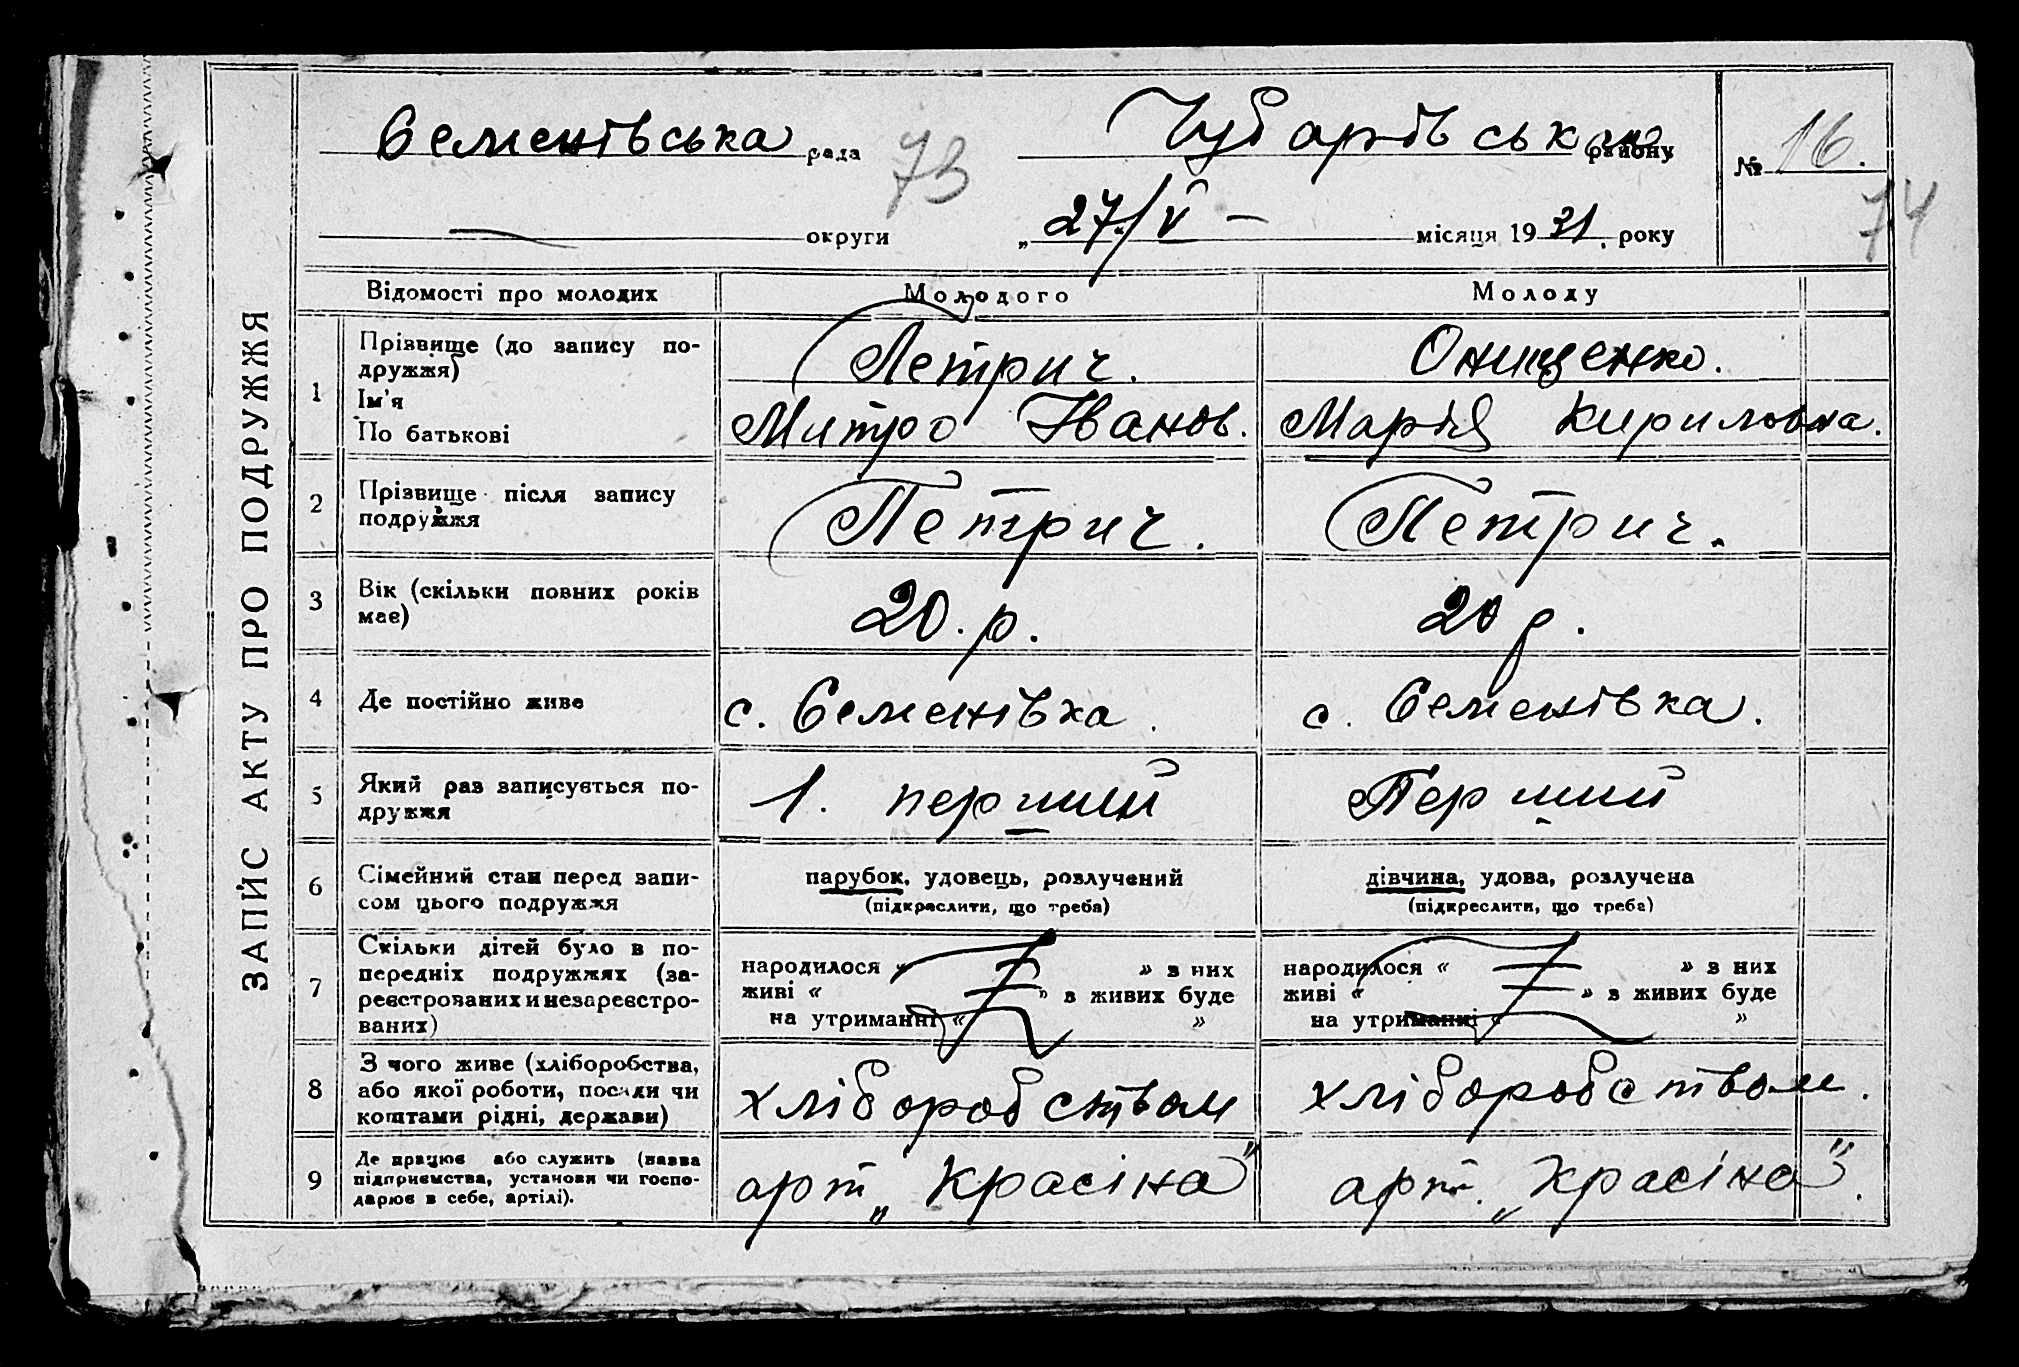 ЗАПИС АКТУ ПРО ПОДРУЖЖЯ
Семенівська рада 73 Чубарівського району № 16.
округи „27/V — місяця 1931 року 74
Відомості про молодих Молодого Молоду
1 Прізвище (до запису по-
дружжя)
Ім'я
По батькові
Петрич.
Митро Іванов.
Онищенко.
Марія Кириловна.
2 Прізвище після запису
подружжя
Петрич.
Петрич.
3 Вік (скільки повних років
має)
20. р.
20 р.
4 Де постійно живе
с. Семенівка.
с. Семенівка.
5 Який раз записується по-
дружжя
1. перший
Перший
6 Сімейний стан перед запи-
сом цього подружжя
парубок, удовець, розлучений
(підкреслити, що треба)
дівчина, удова, розлучена
(підкреслити, що треба)
7 Скільки дітей було в по-
передніх подружжях (за-
реєстрованих и незареєстро-
ваних)
народилося « » з них
живі « » з живих буде
на утриманні « »
народилося « » з них
живі « » з живих буде
на утриманні « »
8 З чого живе (хліборобства,
або якої роботи, посади чи
коштами рідні, держави)
хліборобством
хліборобством.
9 Де працює або служить (назва
підприємства, установи чи госпо-
дарює в себе, артілі).
арт „Красіна"
арт. „Красіна".